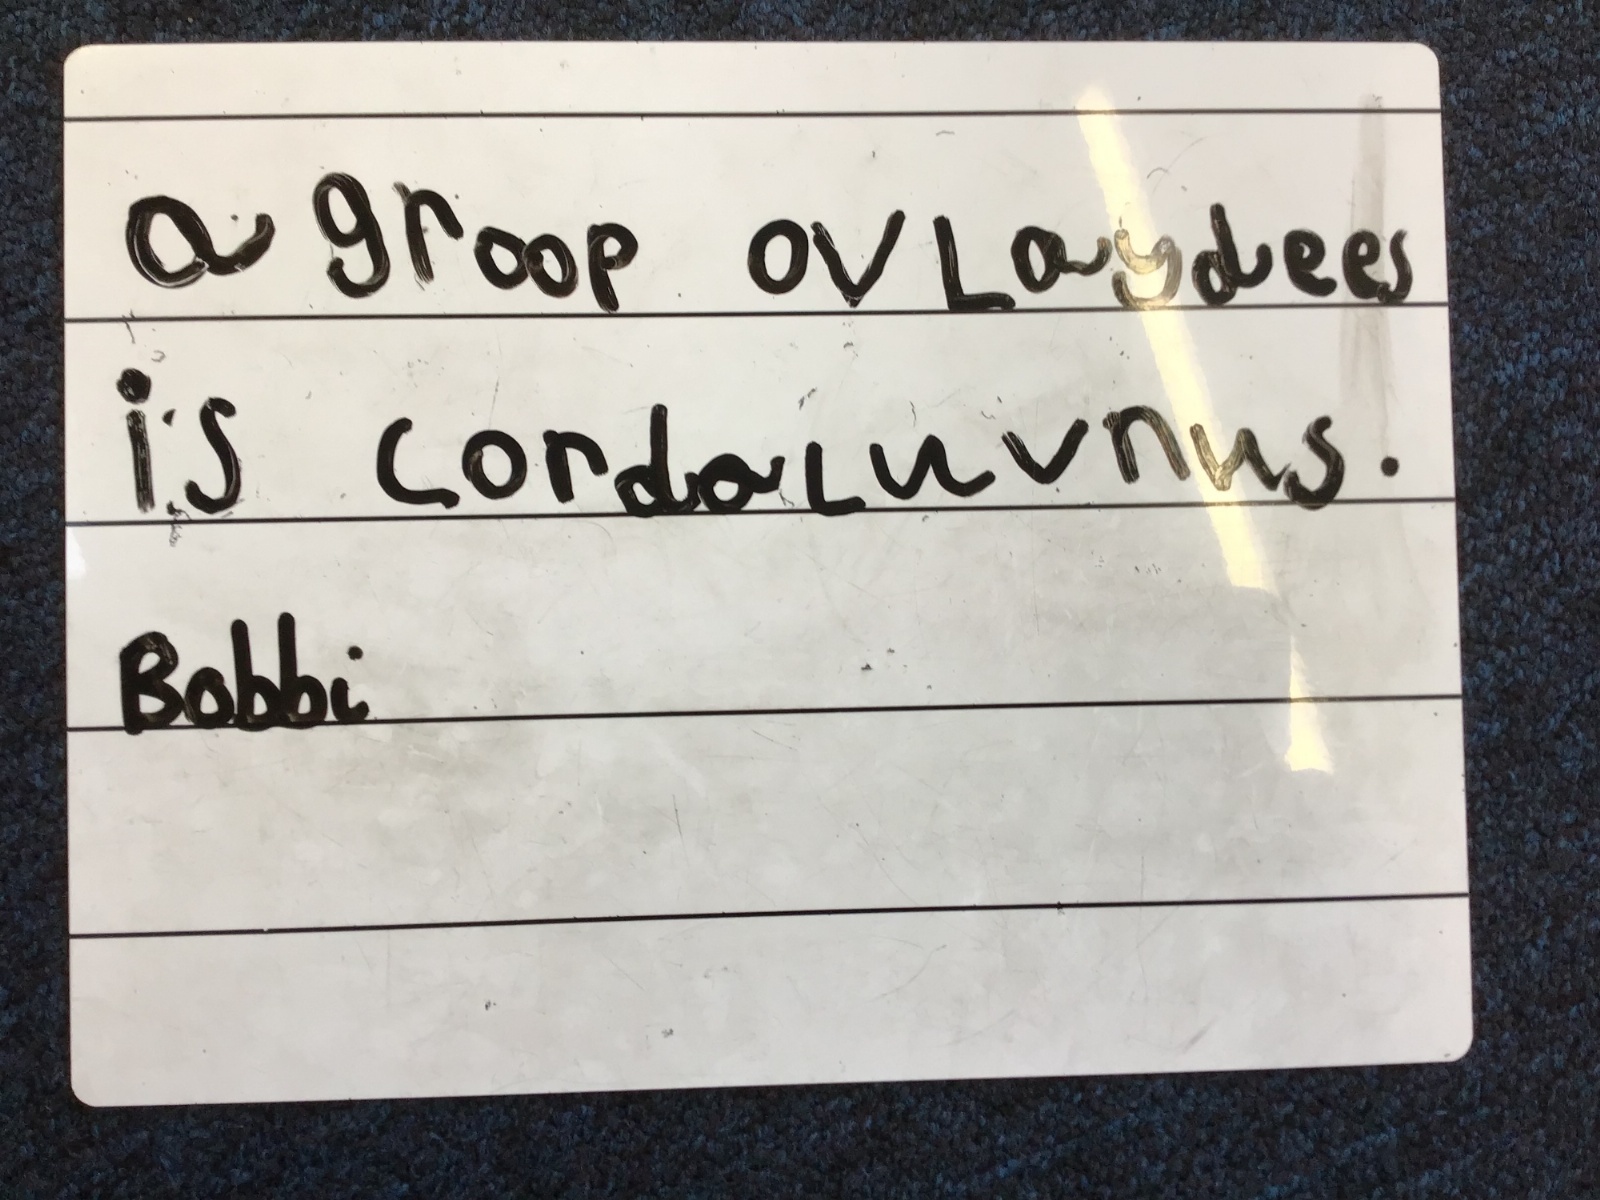 a groop ov Laydees
is cordaLuvnus.
Bobbi